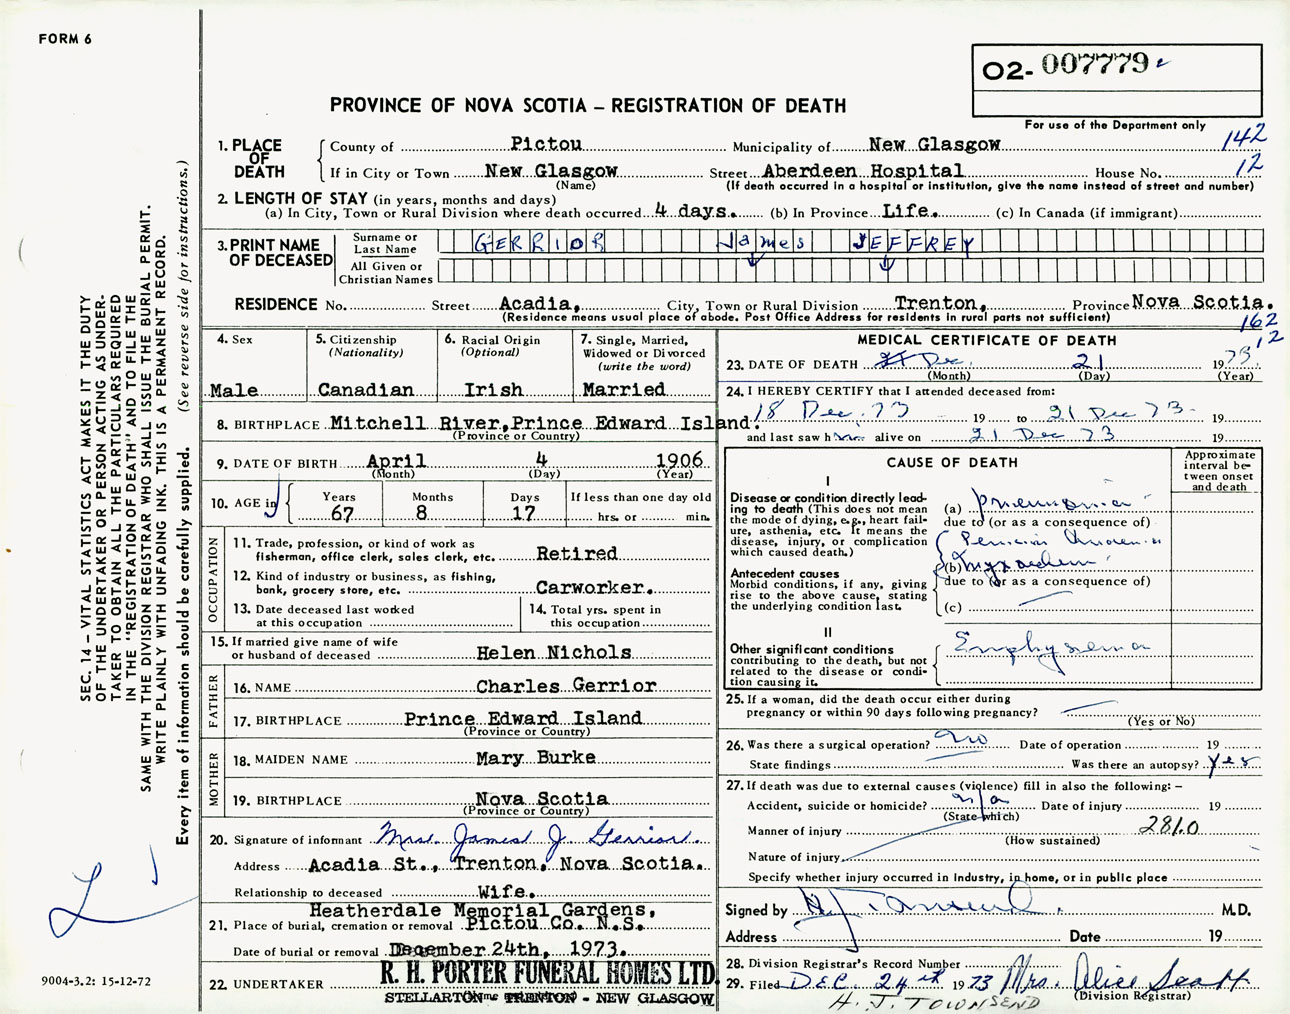 FORM 6
O2- 007779
PROVINCE OF NOVA SCOTIA – REGISTRATION OF DEATH
For use of the Department only
142
12
1. PLACE OF DEATH
County of Pictou Municipality of New Glasgow
If in City or Town New Glasgow Street Aberdeen Hospital House No.
(Name) (If death occurred in a hospital or institution, give the name instead of street and number)
2. LENGTH OF STAY (in years, months and days)
(a) In City, Town or Rural Division where death occurred 4 days. (b) In Province Life. (c) In Canada (if immigrant)
3. PRINT NAME OF DECEASED
Surname or Last Name GERRIOR James JEFFREY
All Given or Christian Names
RESIDENCE No. Street Acadia, City, Town or Rural Division Trenton, Province Nova Scotia.
(Residence means usual place of abode. Post Office Address for residents in rural parts not sufficient)
162
12
4. Sex
Male
5. Citizenship
(Nationality)
Canadian
6. Racial Origin
(Optional)
Irish
7. Single, Married,
Widowed or Divorced
(write the word)
Married
8. BIRTHPLACE Mitchell River, Prince Edward Island.
(Province or Country)
9. DATE OF BIRTH April 4 1906
(Month) (Day) (Year)
10. AGE in
Years Months Days If less than one day old
67 8 17 hrs. or min.
OCCUPATION
11. Trade, profession, or kind of work as
fisherman, office clerk, sales clerk, etc. Retired
12. Kind of industry or business, as fishing,
bank, grocery store, etc. Carworker.
13. Date deceased last worked
at this occupation
14. Total yrs. spent in
this occupation
15. If married give name of wife
or husband of deceased Helen Nichols
FATHER
16. NAME Charles Gerrior
17. BIRTHPLACE Prince Edward Island
(Province or Country)
MOTHER
18. MAIDEN NAME Mary Burke
19. BIRTHPLACE Nova Scotia
(Province or Country)
20. Signature of informant Mrs. James J. Gerrior.
Address Acadia St., Trenton, Nova Scotia.
Relationship to deceased Wife.
Heatherdale Memorial Gardens,
21. Place of burial, cremation or removal Pictou Co. N.S.
Date of burial or removal December 24th, 1973.
22. UNDERTAKER R. H. PORTER FUNERAL HOMES LTD.
STELLARTON - TRENTON - NEW GLASGOW
MEDICAL CERTIFICATE OF DEATH
23. DATE OF DEATH Dec. 21 1973
(Month) (Day) (Year)
24. I HEREBY CERTIFY that I attended deceased from:
18 Dec. 73 19 to 21 Dec 73 19
and last saw him alive on 21 Dec 73 19
CAUSE OF DEATH
Approximate
interval be-
tween onset
and death
I
Disease or condition directly lead-
ing to death (This does not mean
the mode of dying, e.g., heart fail-
ure, asthenia, etc. It means the
disease, injury, or complication
which caused death.)
(a) Pneumonia
due to (or as a consequence of)
Antecedent causes
Morbid conditions, if any, giving
rise to the above cause, stating
the underlying condition last.
Pernicious
(b) myxoedema
due to (or as a consequence of)
(c)
II
Other significant conditions
contributing to the death, but not
related to the disease or condi-
tion causing it.
Emphysema
25. If a woman, did the death occur either during
pregnancy or within 90 days following pregnancy?
(Yes or No)
26. Was there a surgical operation? No Date of operation 19
State findings Was there an autopsy? Yes
27. If death was due to external causes (violence) fill in also the following: –
Accident, suicide or homicide? n/a Date of injury 19
(State which)
Manner of injury 281.0
(How sustained)
Nature of injury
Specify whether injury occurred in Industry, in home, or in public place
Signed by H. J. Townsend. M.D.
Address Date 19
28. Division Registrar's Record Number
29. Filed DEC. 24th 1973 Mrs. Alice Scott
(Division Registrar)
H. J. TOWNSEND
SEC. 14 – VITAL STATISTICS ACT MAKES IT THE DUTY
OF THE UNDERTAKER OR PERSON ACTING AS UNDER-
TAKER TO OBTAIN ALL THE PARTICULARS REQUIRED
IN THE "REGISTRATION OF DEATH" AND TO FILE THE
SAME WITH THE DIVISION REGISTRAR WHO SHALL ISSUE THE BURIAL PERMIT.
WRITE PLAINLY WITH UNFADING INK. THIS IS A PERMANENT RECORD.
Every item of information should be carefully supplied. (See reverse side for instructions.)
9004-3.2: 15-12-72